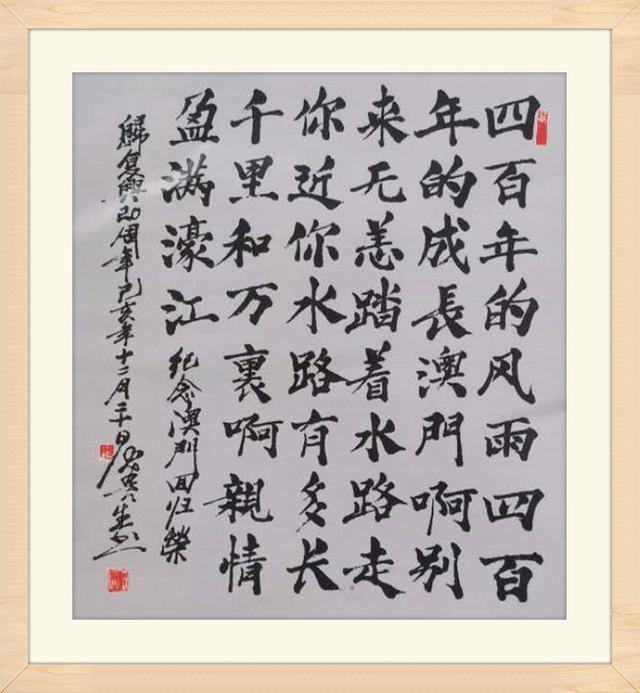 四百年的风雨四百
年的成長澳門啊别
来无恙踏着水路走
你近你水路有多长
千里和万裏啊親情
盈满濠江
纪念澳門回归榮
复興20周年己亥年十二月二十日